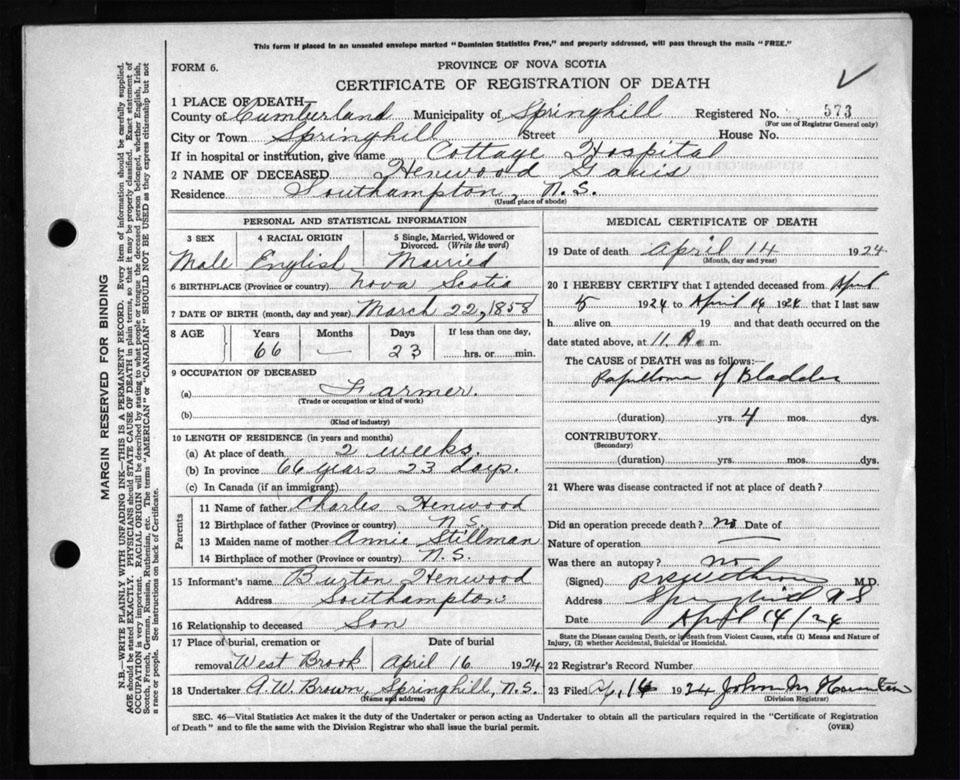 This form if placed in an unsealed envelope marked "Dominion Statistics Free," and properly addressed, will pass through the mails "FREE."
FORM 6.
PROVINCE OF NOVA SCOTIA
CERTIFICATE OF REGISTRATION OF DEATH
1 PLACE OF DEATH—
County of Cumberland Municipality of Springhill Registered No. 573
(For use of Registrar General only)
City or Town Springhill Street House No.
If in hospital or institution, give name Cottage Hospital
2 NAME OF DECEASED Henwood
Residence Southampton, N.S.
(Usual place of abode)
PERSONAL AND STATISTICAL INFORMATION
3 SEX 4 RACIAL ORIGIN 5 Single, Married, Widowed or Divorced. (Write the word)
Male English Married
6 BIRTHPLACE (Province or country) Nova Scotia
7 DATE OF BIRTH (month, day and year) March 22, 1858
8 AGE Years Months Days If less than one day,
66 — 23 hrs. or min.
9 OCCUPATION OF DECEASED
(a) Farmer.
(Trade or occupation or kind of work)
(b)
(Kind of industry)
10 LENGTH OF RESIDENCE (in years and months)
(a) At place of death 2 weeks.
(b) In province 66 years 23 days.
(c) In Canada (if an immigrant)
Parents
11 Name of father Charles Henwood
12 Birthplace of father (Province or country) N.S.
13 Maiden name of mother Annie Stillman
14 Birthplace of mother (Province or country) N.S.
15 Informant's name Burton Henwood
Address Southampton
16 Relationship to deceased Son
17 Place of burial, cremation or Date of burial
removal West Brook April 16 1924
18 Undertaker A.W. Brown, Springhill, N.S.
(Name and address)
MEDICAL CERTIFICATE OF DEATH
19 Date of death April 14 1924
(Month, day and year)
20 I HEREBY CERTIFY that I attended deceased from April
5 1924 to April 14 1924 that I last saw
h alive on 19 and that death occurred on
date stated above, at 11. m.
The CAUSE OF DEATH was as follows:
Papilloma of Bladder
(duration) yrs. 4 mos. dys.
CONTRIBUTORY
(Secondary)
(duration) yrs. mos. dys.
21 Where was disease contracted if not at place of death?
Did an operation precede death? no Date of
Nature of operation
Was there an autopsy? no
(Signed) M.D.
Address Springhill N S
Date April 14/24
State the Disease causing Death, or in death from Violent Causes, state (1) Means and Nature of
Injury, (2) whether Accidental, Suicidal or Homicidal.
22 Registrar's Record Number
23 Filed 16 1924 John M
(Division Registrar)
SEC. 46—Vital Statistics Act makes it the duty of the Undertaker or person acting as Undertaker to obtain all the particulars required in the "Certificate of Registration
of Death" and to file the same with the Division Registrar who shall issue the burial permit. (OVER)
MARGIN RESERVED FOR BINDING
N.B.—WRITE PLAINLY WITH UNFADING INK—THIS IS A PERMANENT RECORD. Every item of information should be carefully supplied.
AGE should be stated EXACTLY. PHYSICIANS should STATE CAUSE OF DEATH in plain terms, so that it may be properly classified. Exact statement of
OCCUPATION is very important. RACIAL ORIGIN will be described by stating to what people or tongue the deceased person belonged, whether English, Irish,
Scotch, French, German, Russian, Ruthenian, etc. The terms "AMERICAN" or "CANADIAN" SHOULD NOT BE USED as they express citizenship but not
a race or people. See instructions on back of Certificate.